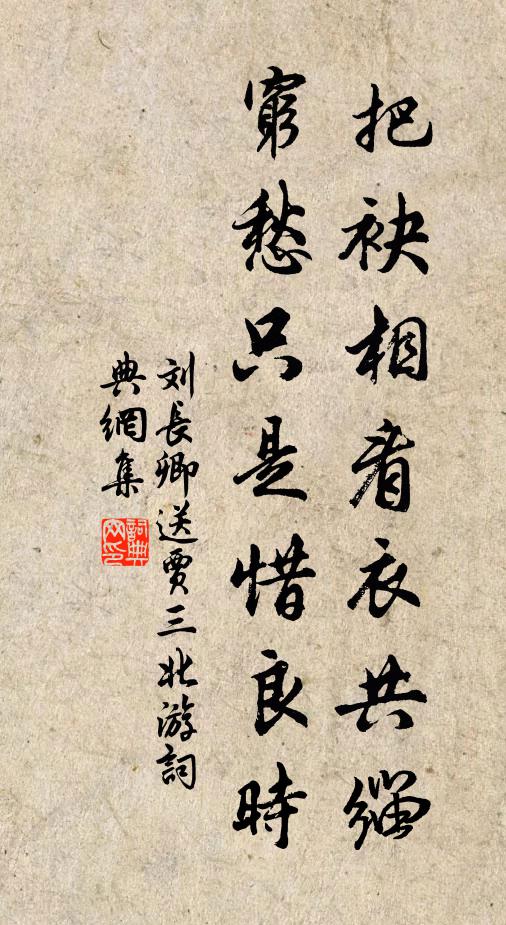 把袂相看衣共緇
窮愁只是惜良時
刘長卿送賈三北游詞
典網集
詞典
网印